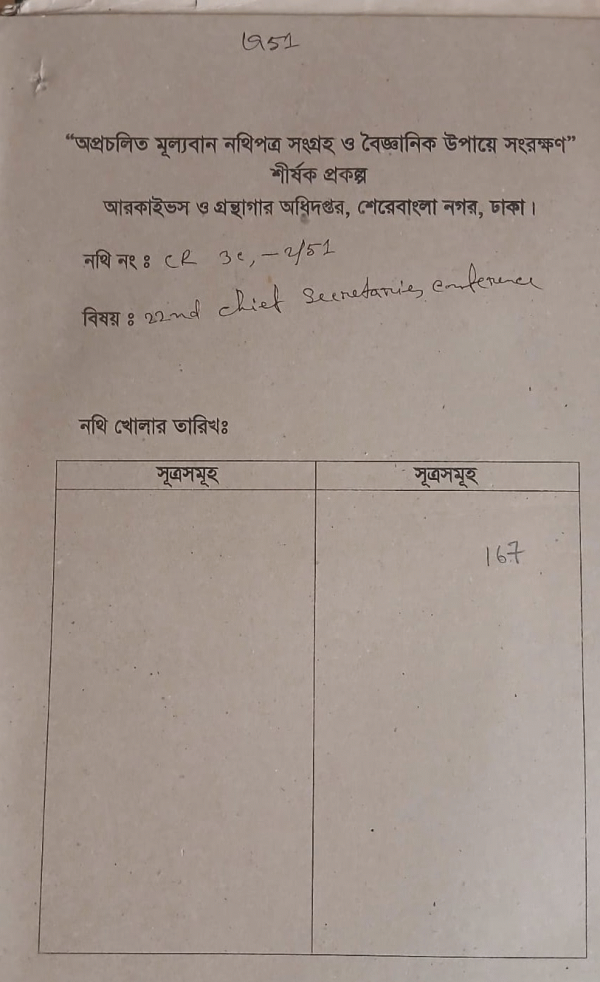 “অপ্রচলিত মূল্যবান নথিপত্র সংগ্রহ ও বৈজ্ঞানিক উপায়ে সংরক্ষণ”
শীর্ষক প্রকল্প
আরকাইভস ও গ্রন্থাগার অধিদপ্তর, শেরেবাংলা নগর, ঢাকা।
নথি নং ঃ CR 3c, -2/51
বিষয় ঃ 22nd Chief Secretaries Conference
নথি খোলার তারিখঃ
সূত্রসমূহ সূত্রসমূহ
167